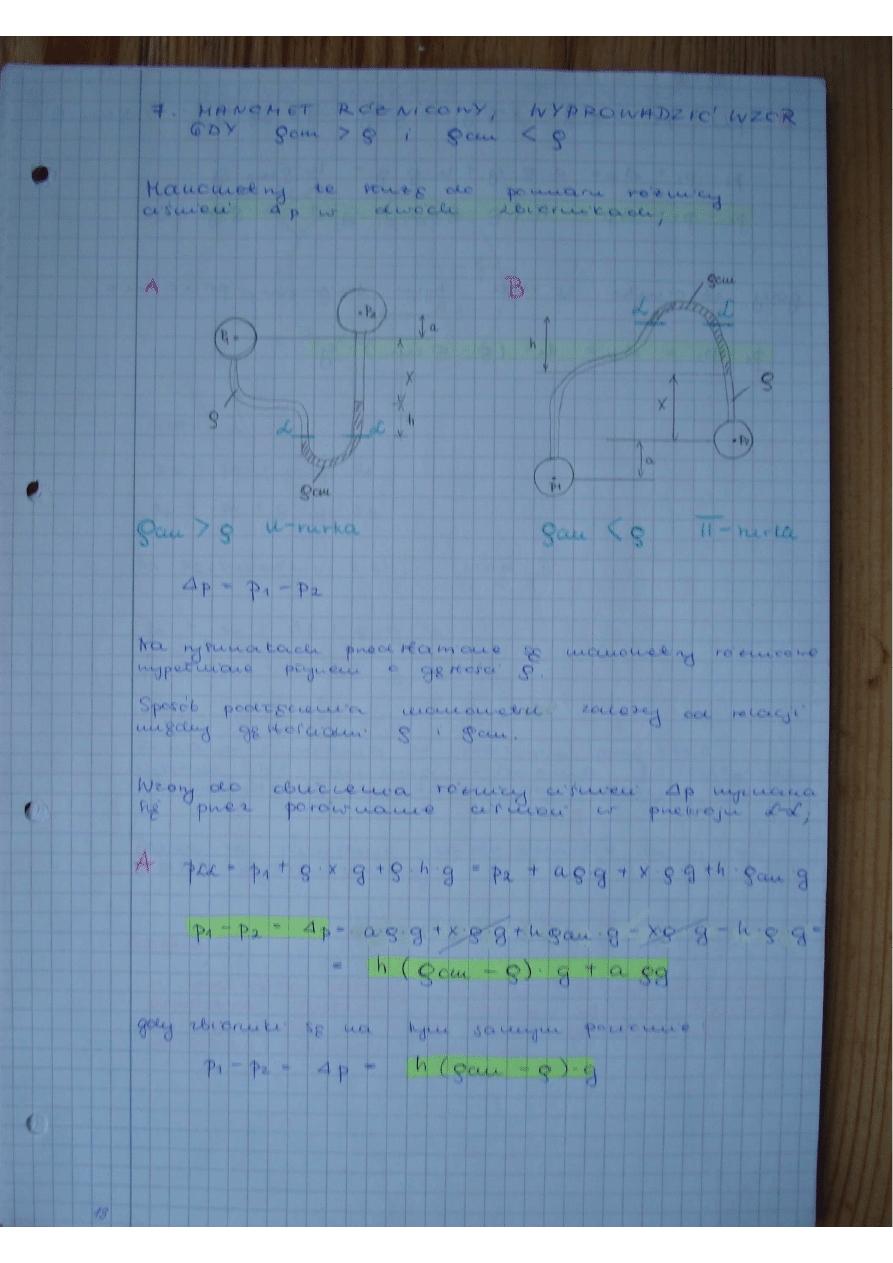 7. MANOMET RÓŻNICOWY, WYPROWADZIĆ WZÓR
GDY ρam > ρ i ρam < ρ
Manometry te służą do pomiaru różnicy
ciśnień Δp w dwóch zbiornikach;
A
B
ρam
P1
P2
a
x
h
ρ
α
α
ρam
α
α
h
x
ρ
a
p2
p1
ρam > ρ U-rurka
ρam < ρ Π-rurka
Δp = p1 - p2
Na rysunkach przedstawione są manometry różnicowe
wypełnione płynem o gęstości ρ.
Sposób podłączenia manometru zależy od relacji
między gęstościami ρ i ρam.
Wzory do obliczenia różnicy ciśnień Δp wyprowadza
się przez porównanie ciśnień w przekroju α-α;
A pαα = p1 + ρ·x·g + ρ·h·g = p2 + aρg + xρg + h·ρam g
p1 - p2 = Δp = aρ·g + x·ρ·g + hρam·g - xρ·g - h·ρ·g =
= h(ρam - ρ)·g + aρg
gdy zbiorniki są na tym samym poziomie
p1 - p2 = Δp = h(ρam - ρ)·g